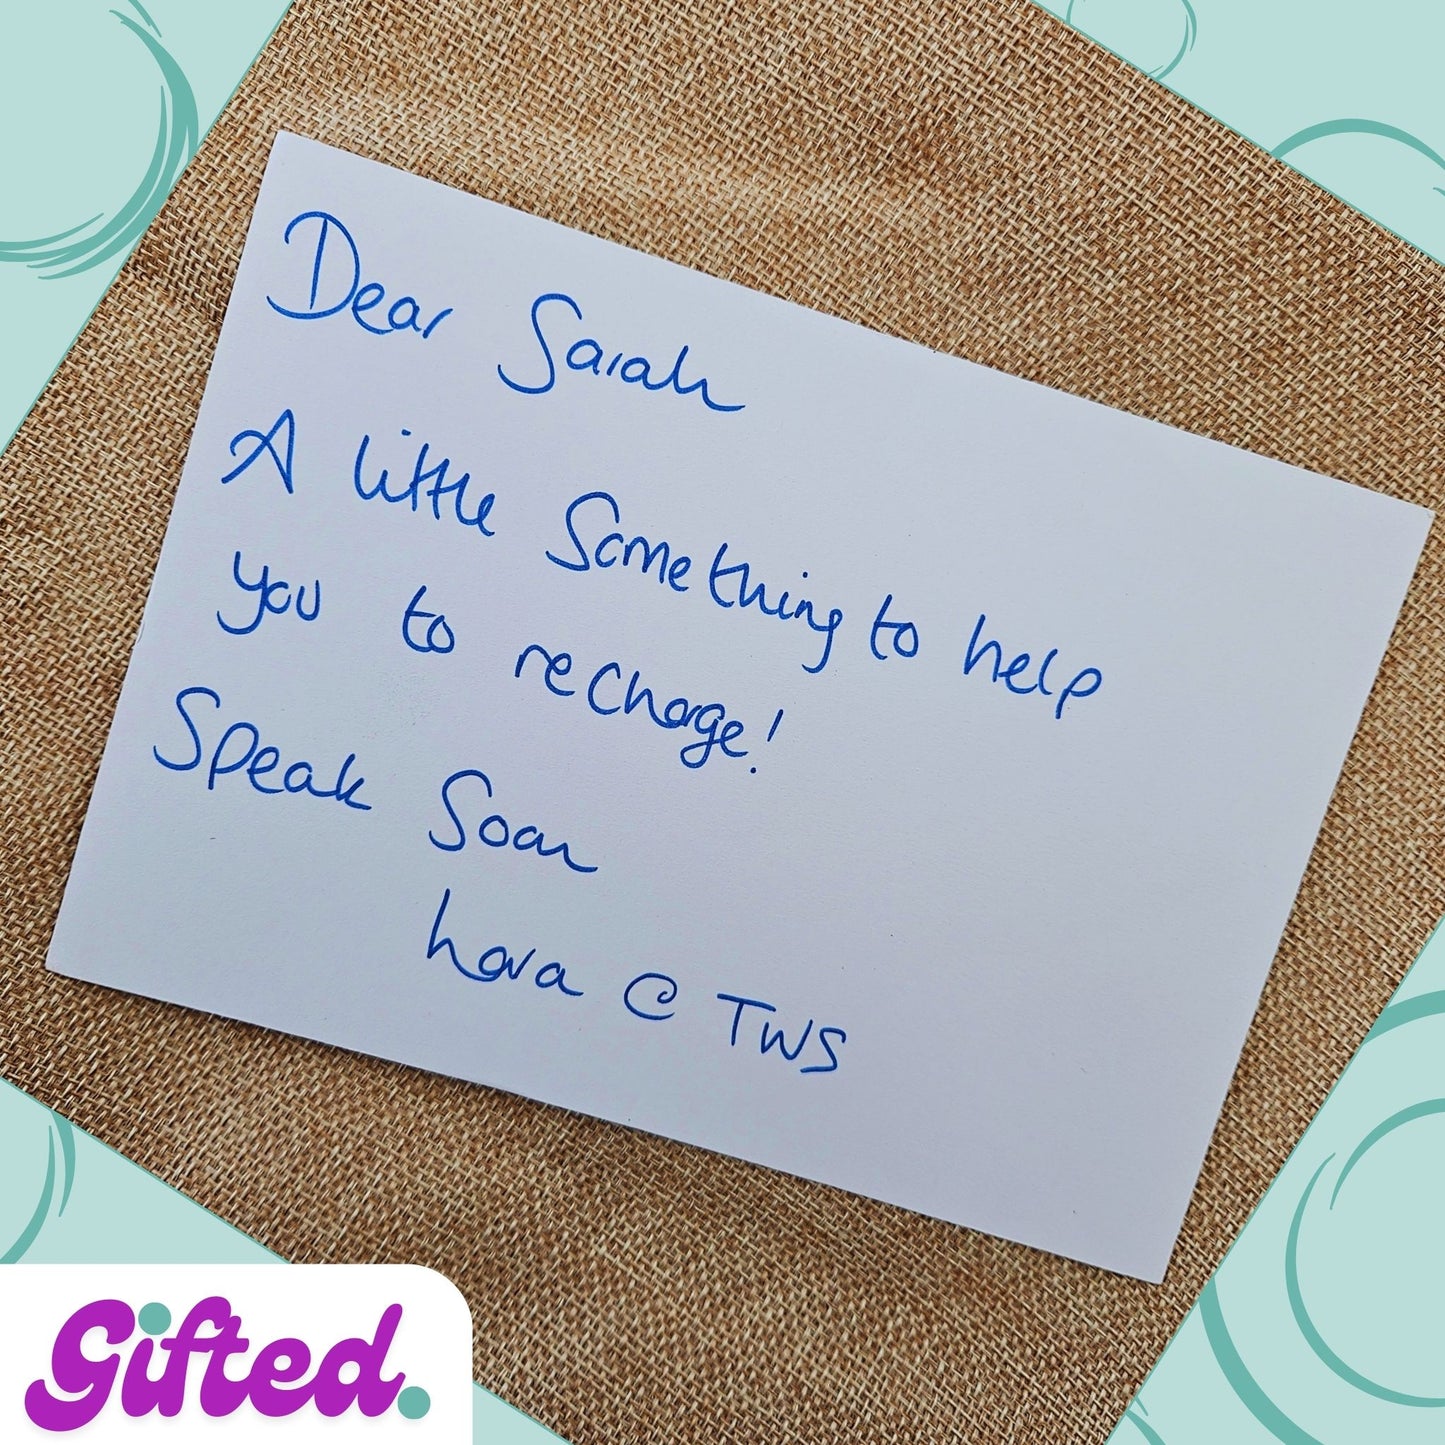 Dear Sarah
A little Something to help
you to recharge!
Speak Soon
Lara @ TWS
Gifted.